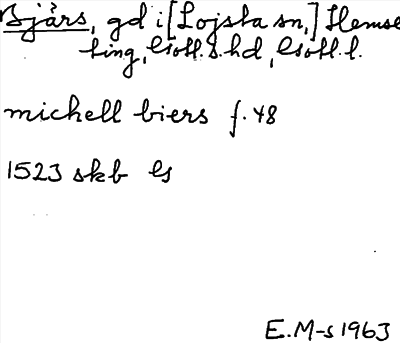 Bjärs, gd i [Lojsta sn,] Hemse
ting, Gotl. s. hd, Gotl. l.
michell biers f. 48
1523 skb G
E. M-s 1963